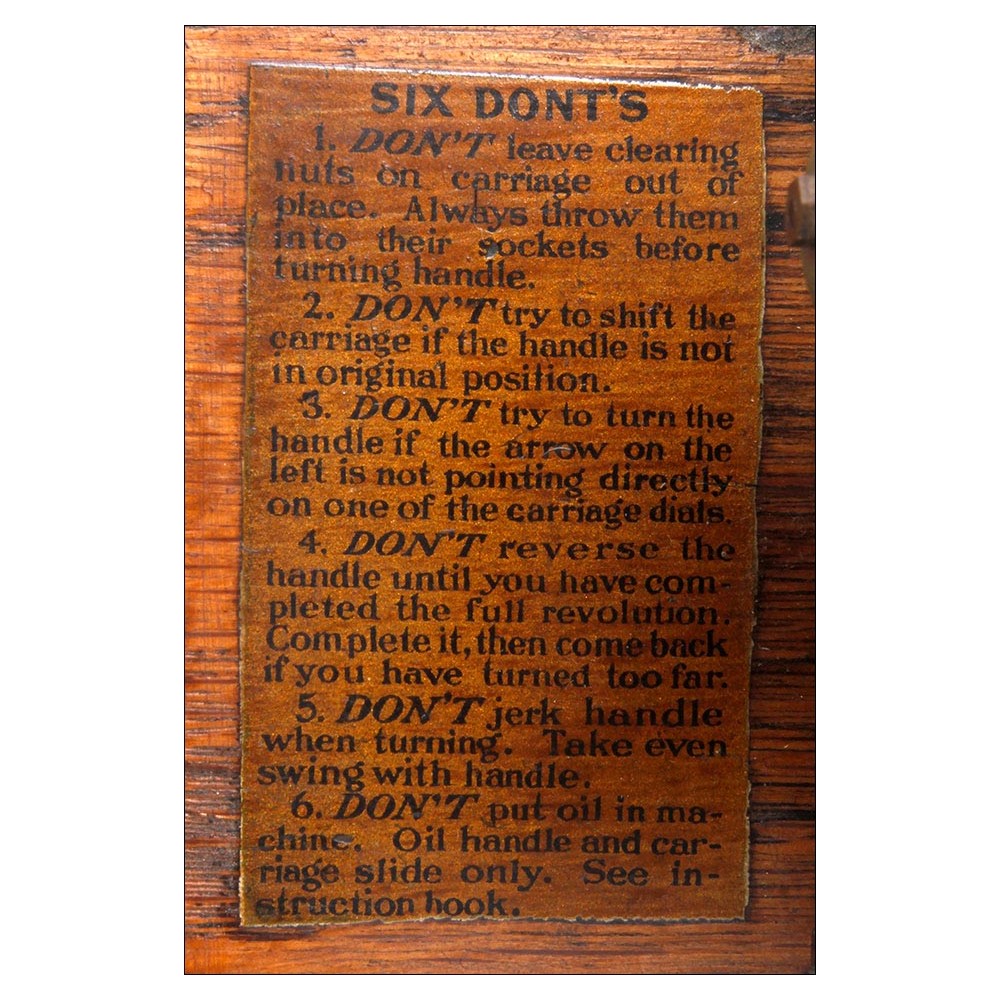 SIX DONT'S
1. DON'T leave clearing
nuts on carriage out of
place. Always throw them
into their sockets before
turning handle.
2. DON'T try to shift the
carriage if the handle is not
in original position.
3. DON'T try to turn the
handle if the arrow on the
left is not pointing directly
on one of the carriage dials.
4. DON'T reverse the
handle until you have com-
pleted the full revolution.
Complete it, then come back
if you have turned too far.
5. DON'T jerk handle
when turning. Take even
swing with handle.
6. DON'T put oil in ma-
chine. Oil handle and car-
riage slide only. See in-
struction book.